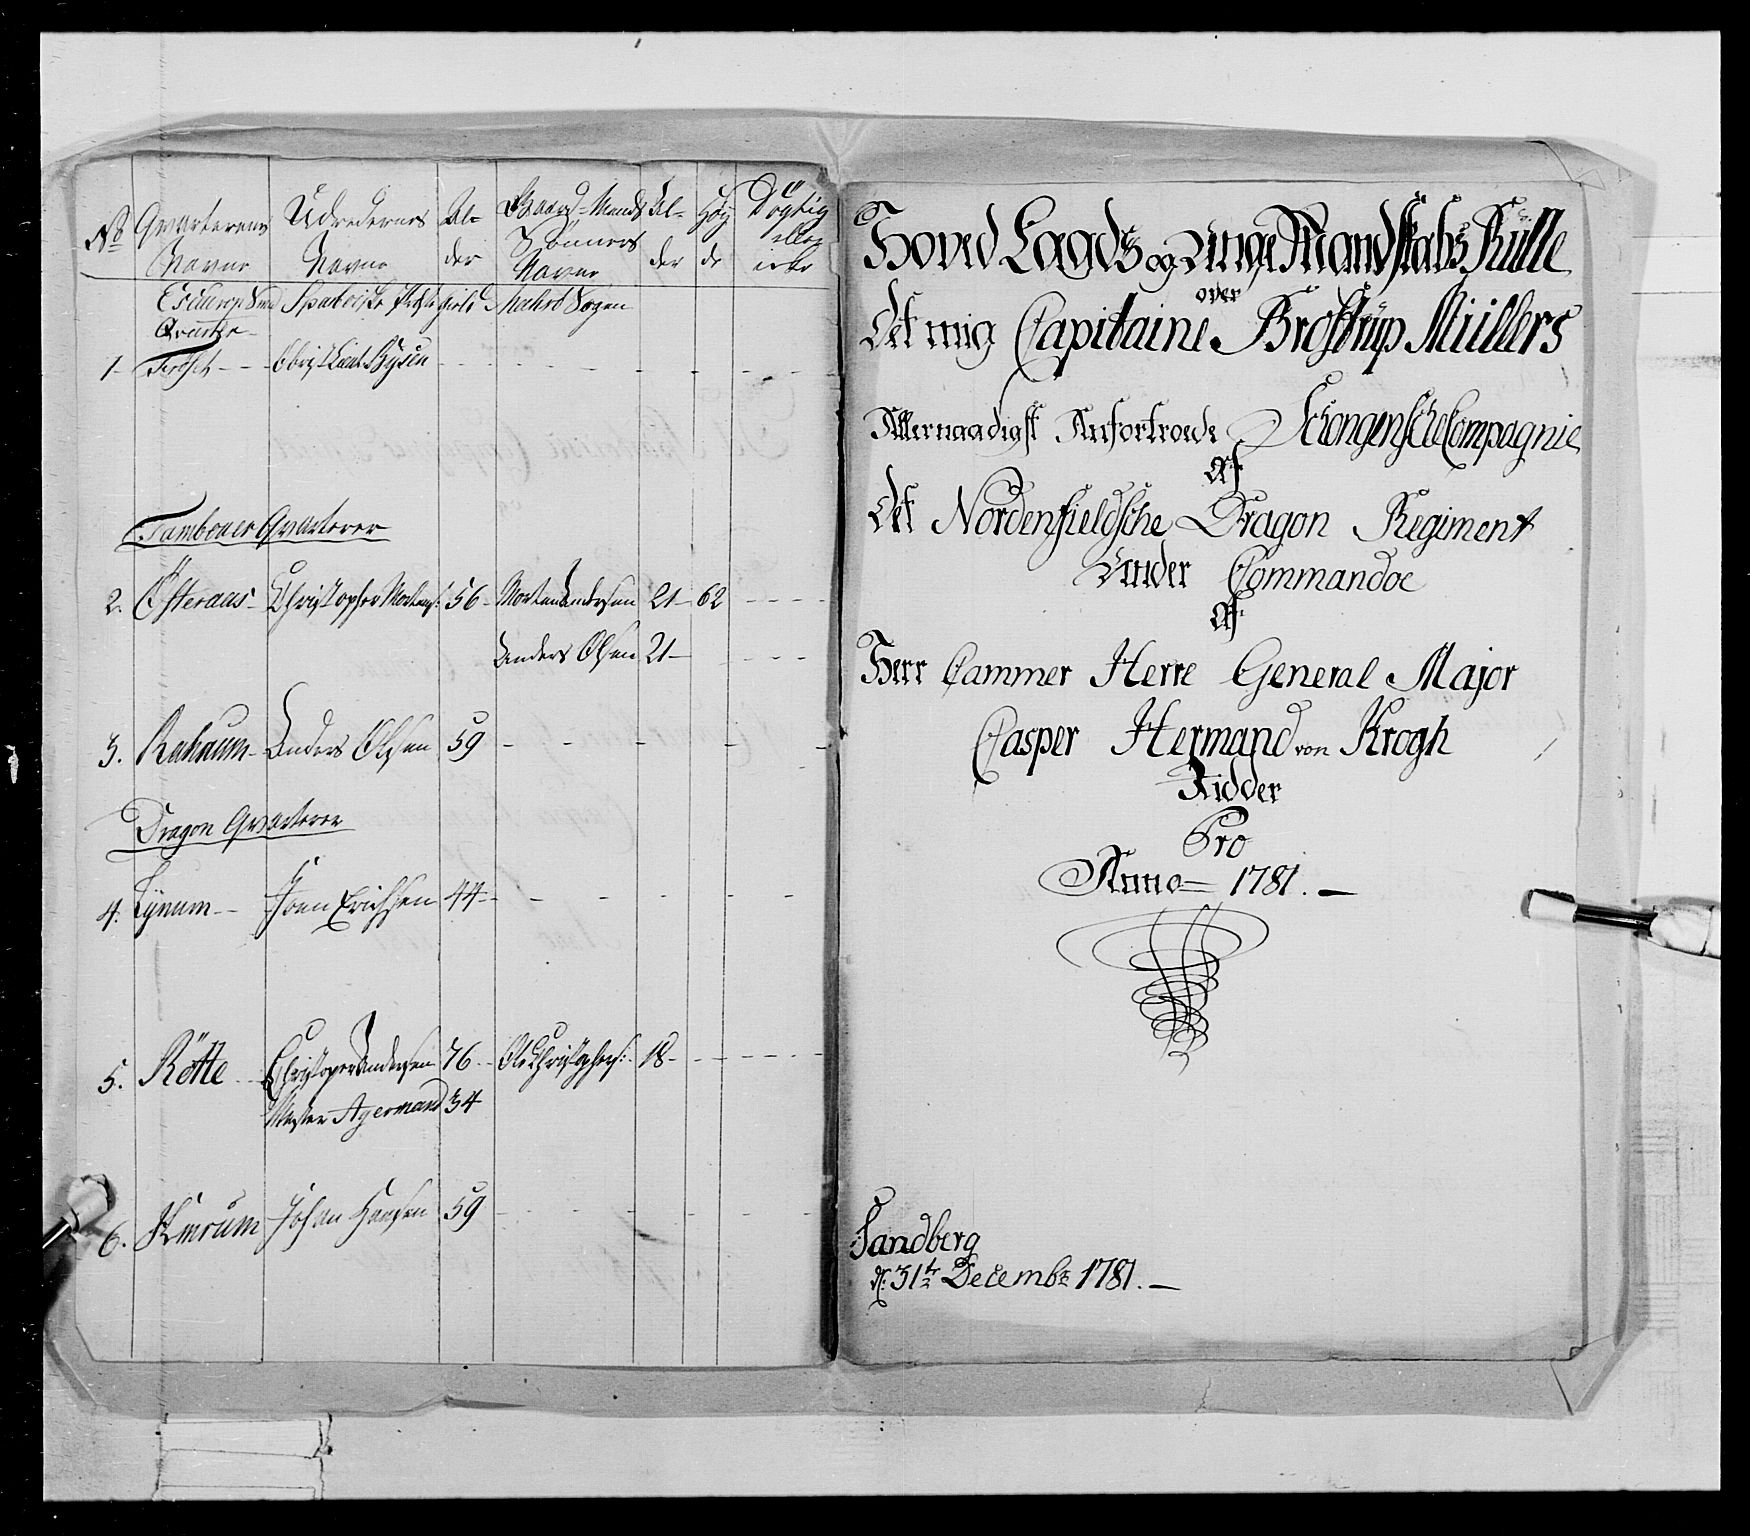 No Qvarterens Navne
Udredernes Navne
Al-
der
Gaard-Mands Sönners Navne
Al-
der
Höy
de
Dögtig
eller
icke
Sparboe
1.
Obrist Lieut
Tambouer Qvarterer
2. Österaas - Christopher Mortens: 56 - Morten Andersen 21 - 62
Anders Olsen 21 -
3. Anders Olsen 59
Dragon Qvarterer
4. Lynum - Joen Erichsen 44 -
5. Rötte - Christoper Andersen 76 - Ole Christophers: 18 -
Mester Agermand 34
6. Johan Hansen 59
Hoved Lagds og Unge Mandskabs Rulle
over
Det mig Capitaine Brostrup Müllers
Allernaadigst Anfortroede Schongenske Compagnie
Af
Det Nordenfieldsche Dragon Regiment
Under Commandoe
Af
Herr Cammer Herre General Major
Casper Hermand von Krogh
Ridder
Pro
Anno 1781. —
Sandberg
d: 31te Decembr 1781. —